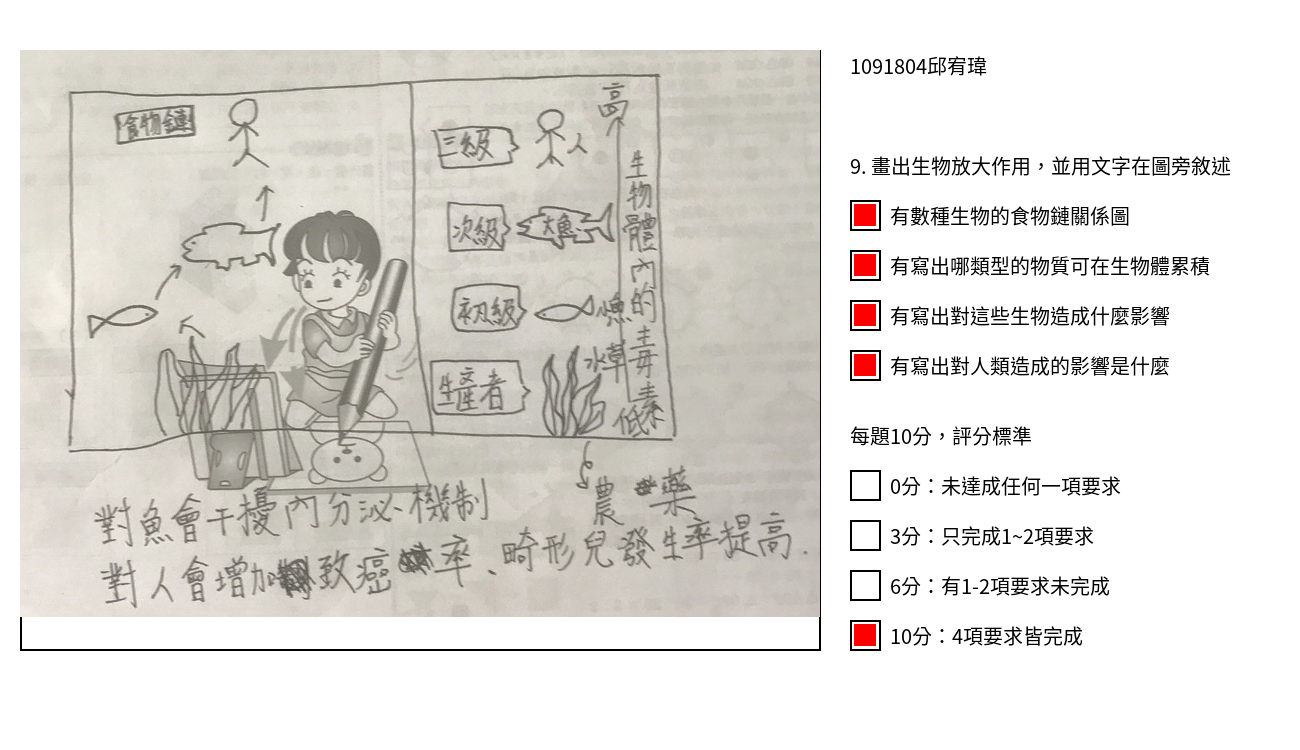 食物鏈
高
三級
人
次級
大魚
初級
小魚
水草
生產者
生物體內的毒素
低
農藥
對魚會干擾內分泌機制
對人會增加致癌率、畸形兒發生率提高.
1091804邱宥瑋
9. 畫出生物放大作用，並用文字在圖旁敘述
有數種生物的食物鏈關係圖
有寫出哪類型的物質可在生物體累積
有寫出對這些生物造成什麼影響
有寫出對人類造成的影響是什麼
每題10分，評分標準
0分：未達成任何一項要求
3分：只完成1~2項要求
6分：有1-2項要求未完成
10分：4項要求皆完成